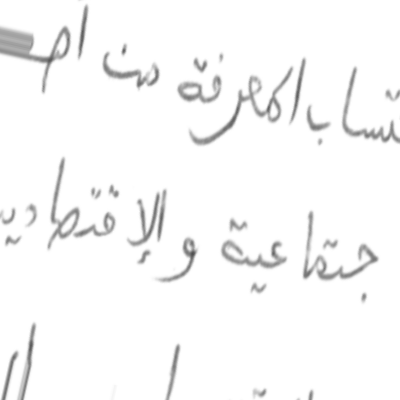 تساب المعرفة من أم
جتماعية والإقتصادية